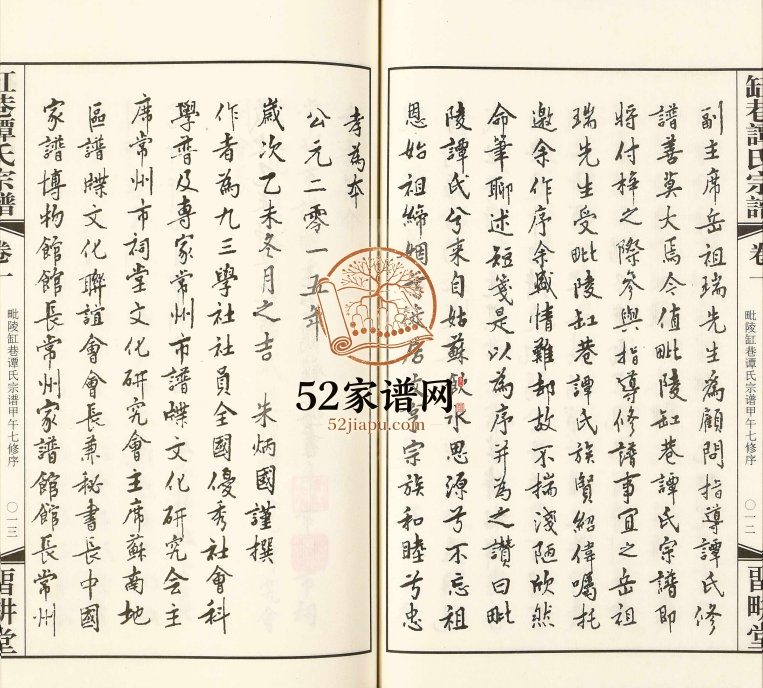 缸巷譚氏宗譜
卷一
毗陵缸巷谭氏宗谱甲午七修序
〇一二
副主席岳祖瑞先生為顧問指導譚氏修
譜善莫大焉今值毗陵缸巷譚氏宗譜即
將付梓之際參與指導修譜事宜之岳祖
瑞先生受毗陵缸巷譚氏族賢紹偉囑托
邀余作序余感情難却故不揣淺陋欣然
命筆聊述短箋是以為序并為之讚曰毗
陵譚氏兮來自姑蘇飲水思源兮不忘祖
恩始祖締 宗族和睦兮忠
孝為本
公元二零一五年
歲次乙未冬月之吉 朱炳國謹撰
作者為九三學社社員全國優秀社會科
學普及專家常州市譜牒文化研究会主
席常州市祠堂文化研究會主席蘇南地
區譜牒文化聯誼會會長兼秘書長中國
家譜博物館館長常州家譜館館長常州
缸巷譚氏宗譜
卷一
毗陵缸巷谭氏宗谱甲午七修序
〇一三
52家谱网
52jiapu.com